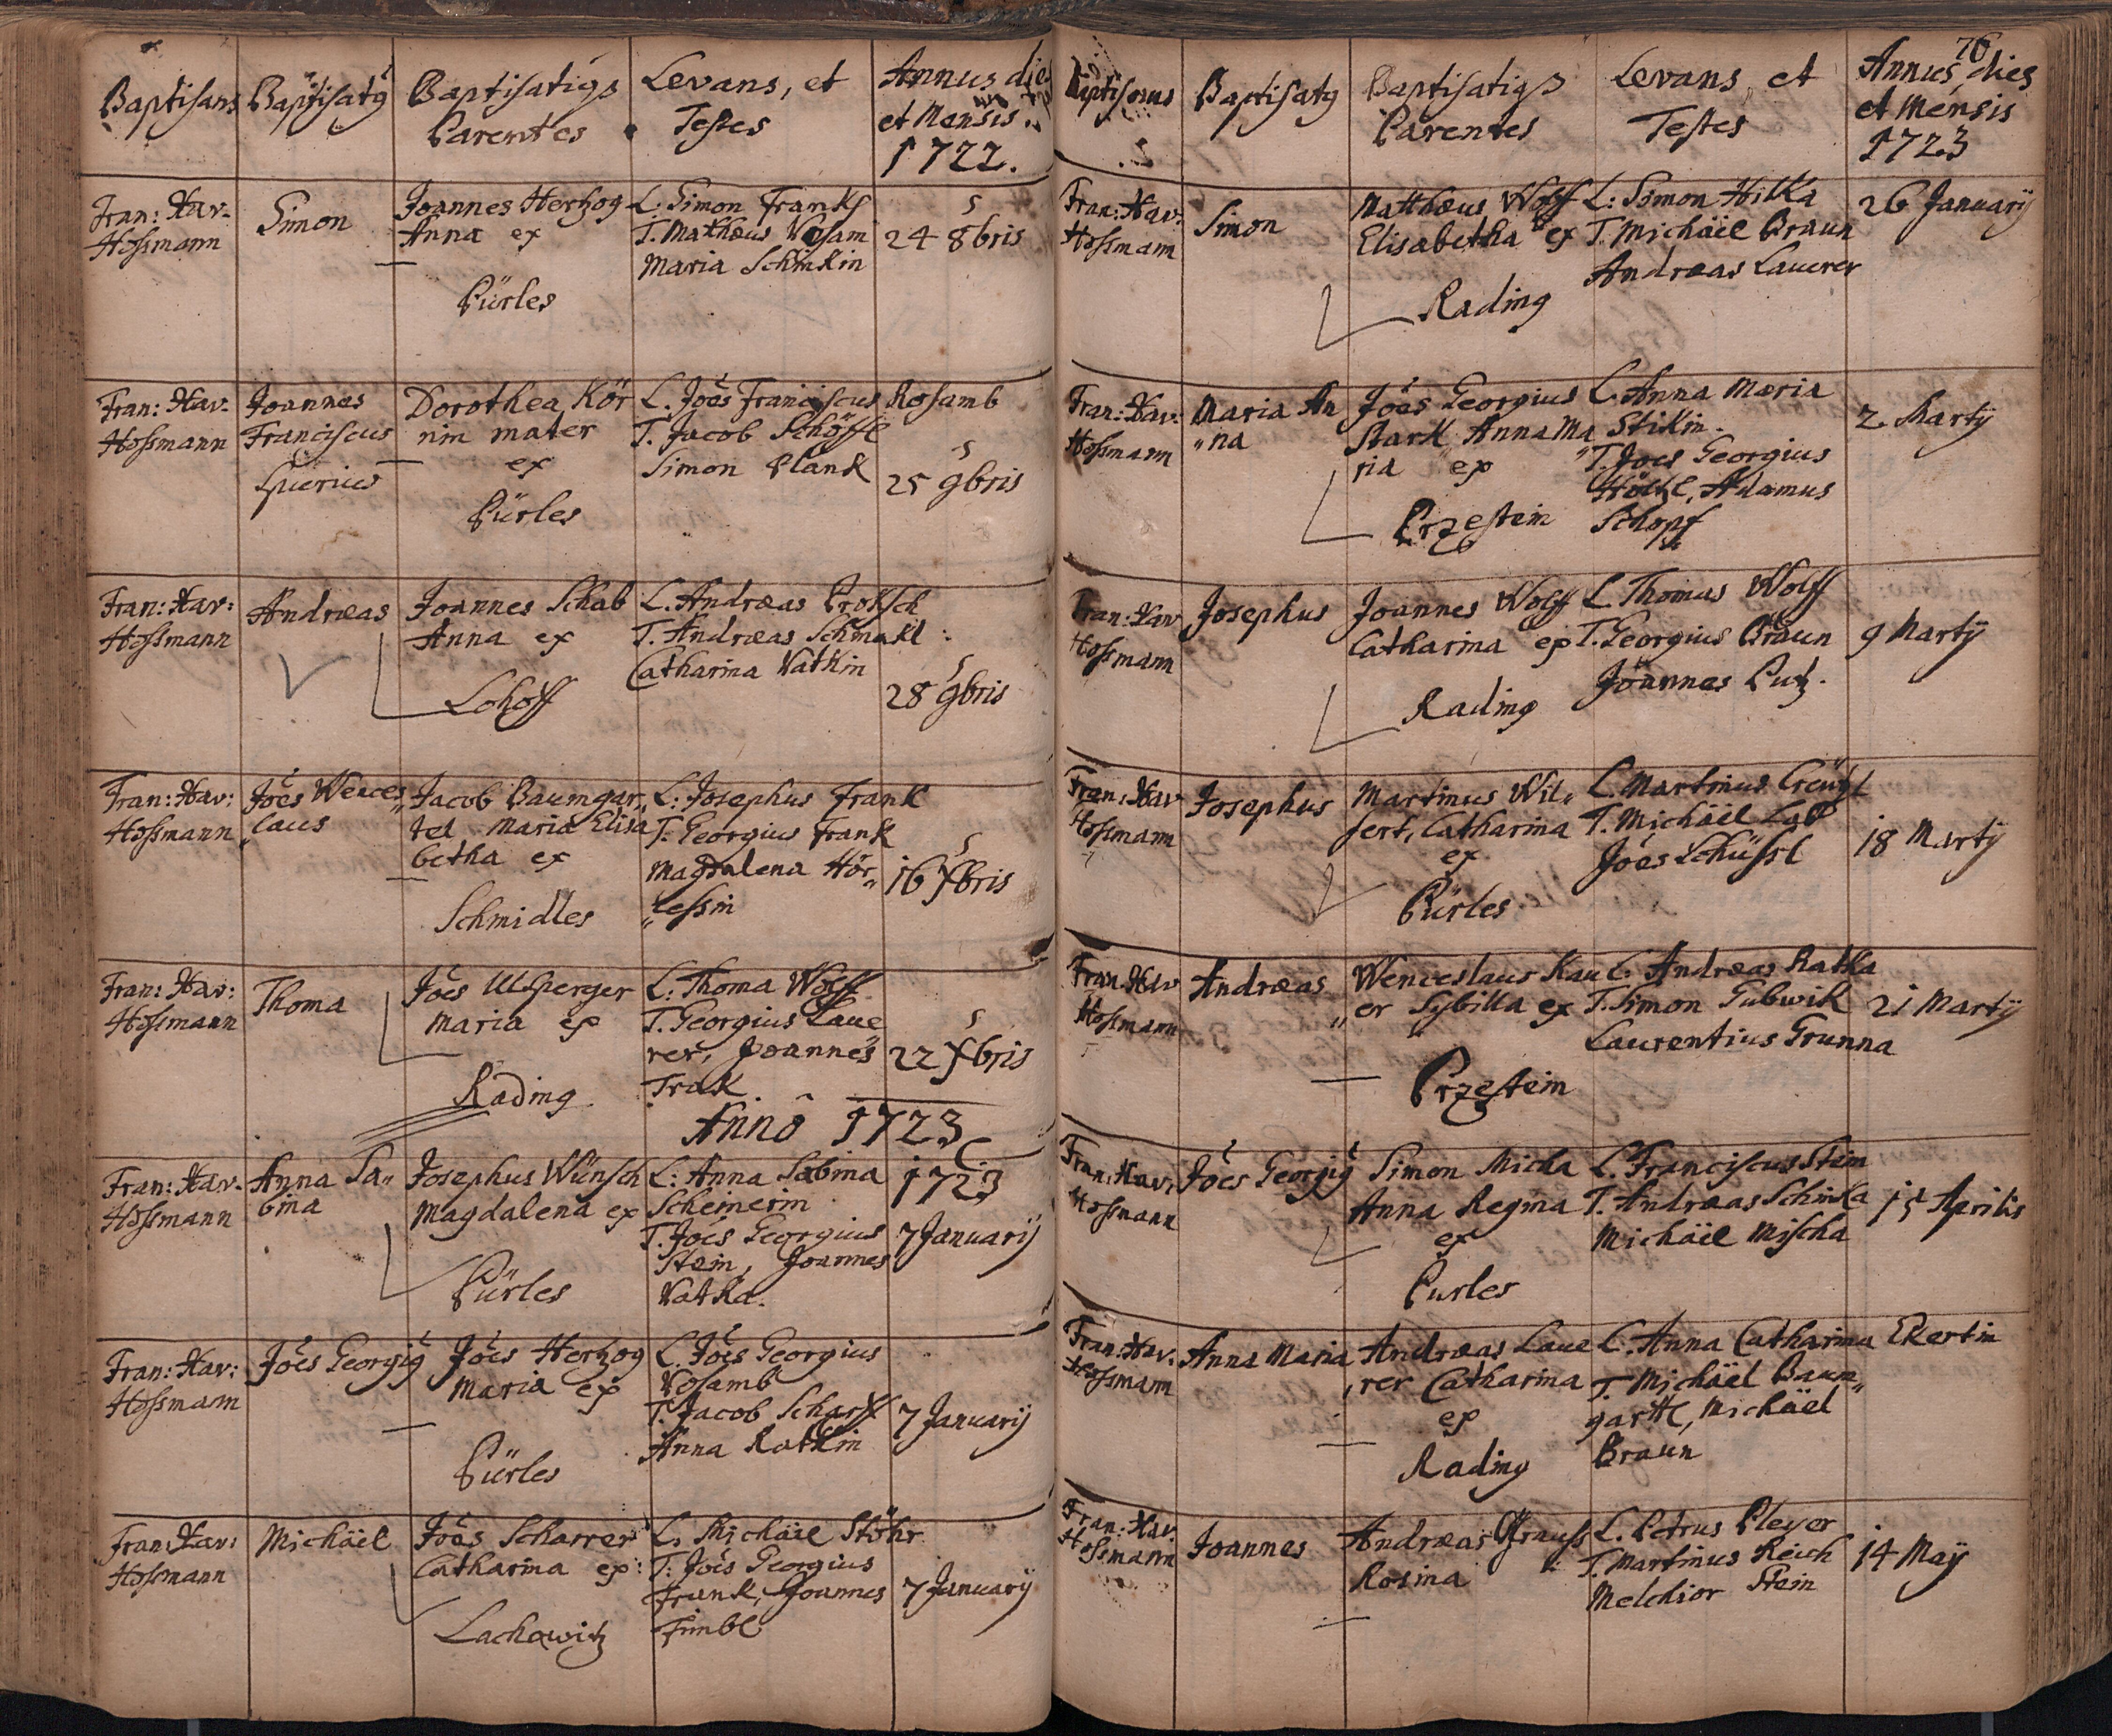 Baptisans Baptisatg Baptisatigs Parentes Levans, et Testes Annus dies et Mensis 1722.
Fran: Xav. Hossmann
Simon
Joannes Hertzog
Anna ex
Pürles
L: Simon Franks
T. Mathæus Vosam
Maria Schinkin
24 8bris
Fran: Xav. Hossmann
Joannes
Franciscus
Spurius
Dorothea Kör
nin mater
ex
Pürles
L. Joes Franciscus Rosamb
T. Jacob Schöffl
Simon Plank
25 9bris
Fran: Xav: Hossmann
Andræas
Joannes Schab
Anna ex
Lohoff
L. Andræas Prossch
T. Andræas Schmakl
Catharina Vatkin
28 9bris
Fran: Xav: Hossmann
Joes Wences„
„laus
Jacob Baumgar„
tel Maria Elisa
betha ex
Schmidles
L: Josephus Frank
T. Georgius Frank
Magdalena Hör„
„lessin
16 Xbris
Fran: Xav: Hossmann
Thoma
Joes Ulsperger
Maria ex
Rading
L: Thoma Wolff
T. Georgius Laue
rer, Joannes
Trak.
22 Xbris
Anno 1723
Fran: Xav. Hossmann
Anna Sa„
bina
Josephus Wünsch
Magdalena ex
Pürles
L: Anna Sabina
Scheinerin
T. Joes Georgius
Stein, Joannes
Vatka.
1723
7 Januarij
Fran: Xav: Hossmann
Joes Georgig
Joes Hertzog
Maria ex
Pürles
L. Joes Georgius
Vosamb
T. Jacob Scharff
Anna Ratkin
7 Januarij
Fran: Xav: Hossmann
Michäel
Joes Scharrer
Catharina ex:
Lachowitz
L. Michäel Stöhr
T: Joes Georgius
Frank, Joannes
Fimbl
7 Januarij
76
Baptisans Baptisatg Baptisatigs Parentes Levans, et Testes Annus, dies et Mensis 1723
Fran: Xav: Hossmann
Simon
Matthæus Wolff
Elisabetha ex
Rading
L: Simon Hilka
T. Michäel Braun
Andræas Lauerer
26 Januarij
Fran: Xav: Hossmann
Maria An
„na
Joes Georgius
Stark Anna Ma
ria ex
Przestein
L. Anna Maria
Stikin.
T. Joes Georgius
Höltzl, Adamus
Schopf
2. Martij
Fran: Xav Hossmann
Josephus
Joannes Wolff
Catharina ex
Rading
L. Thomas Wolff
T. Georgius Braun
Joannes Putz.
9 Martij
Fran: Xav Hossmann
Josephus
Martinus Wil„
fert, Catharina
ex
Pürles
L. Martinus Creützl
T. Michäel
Joes Schüssl
18 Martij
Fran: Xav Hossmann
Andræas
Wenceslaus Kau
„er Sybilla ex
Przestein
L: Andræas Ratka
T. Simon Gubwik
Laurentius Grunna
21 Martij
Fran: Xav: Hossmann
Joes Georgig
Simon Micha
Anna Regina
ex
Purles
L. Franciscus Stein
T. Andræas Schinka
Michäel Mischa
15 Aprilis
Fran: Xav: Hossmann
Anna Maria
Andræas Laue
„rer Catharina
ex
Rading
L. Anna Catharina Ekertin
T. Michäel Baum„
gartl, Michäel
Braun
Fran: Xav Hossmann
Joannes
Andræas Strauss
Rosina
L. Petrus Pleyer
T. Martinus Reich
Melchior Stein
14 Maij